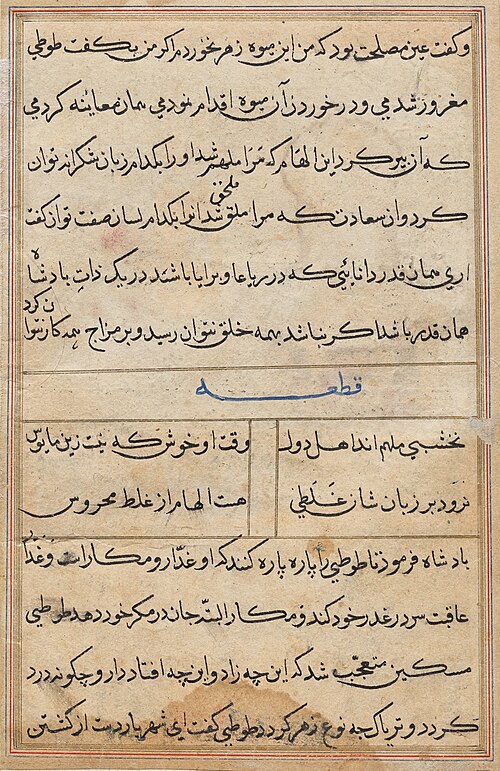 و کفت عین مصلحت بود که من این میوه زهر نخوردم اکر من بکفت طوطی
مغرور شدمی و در خوردن آن میوه اقدام نمودمی همان معاینه کردمی
که آن پیر کرد این الهام که مرا ملهم شد او را بکدام زبان شکرانه توان
کرد وان سعادت که مرا ملحق شد انرا بکدام لسان صفت توان کفت
اری همان قدر دانائی که در رعایا و برایا باشد در یک ذات بادشاه
همان قدر باشد اکر نباشد بهمه خلق نتوان رسید و بر مزاج همه کار نتوان کرد
قطعه
نخشبی ملهم اند اهل دول
وقت او خوش که نیست زین مایوس
نرود بر زبان شان غلطی
هست الهام از غلط محروس
بادشاه فرمود تا طوطی را پاره پاره کنند که او غدّار و مکار است و غدّار
عاقبت سر در غدر خود کند و مکار البتّه جان در مکر خود دهد طوطی
مسکین متعجّب شد که این چه زاد و این چه افتاد دارو چکونه درد
کردد و تریاک چه نوع زهر کردد طوطی کفت ای شهریار دست از کشتن